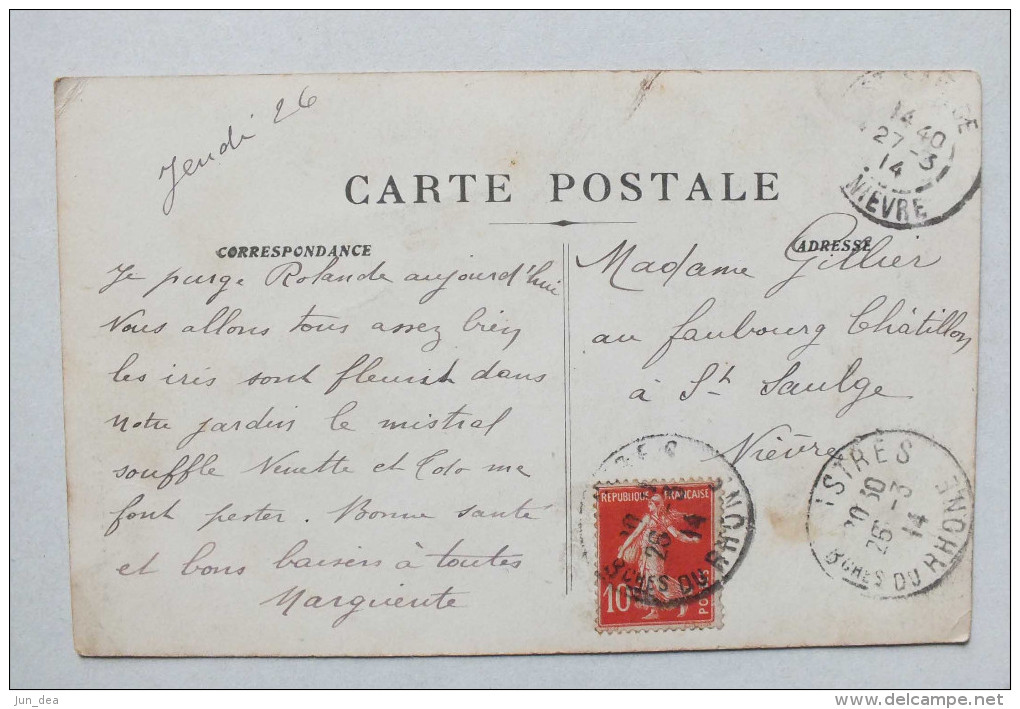 Jeudi 26
14 40
27-3
14
NIEVRE
CARTE POSTALE
CORRESPONDANCE
ADRESSE
Je purge Rolande aujourd'hui
Nous allons tous assez bien
les iris sont fleurist dans
notre jardin le mistral
souffle Nenette et Toto me
font pester. Bonne santé
et bons baisers à toutes
Marguerite
Madame Gillier
au faubourg Châtillon
à St Saulge
Nièvre
REPUBLIQUE FRANÇAISE
10
POSTES
26
14
BCHES DU RHONE
ISTRES
20 30
26-3
14
BCHES DU RHONE
jun_dea
www.delcampe.net